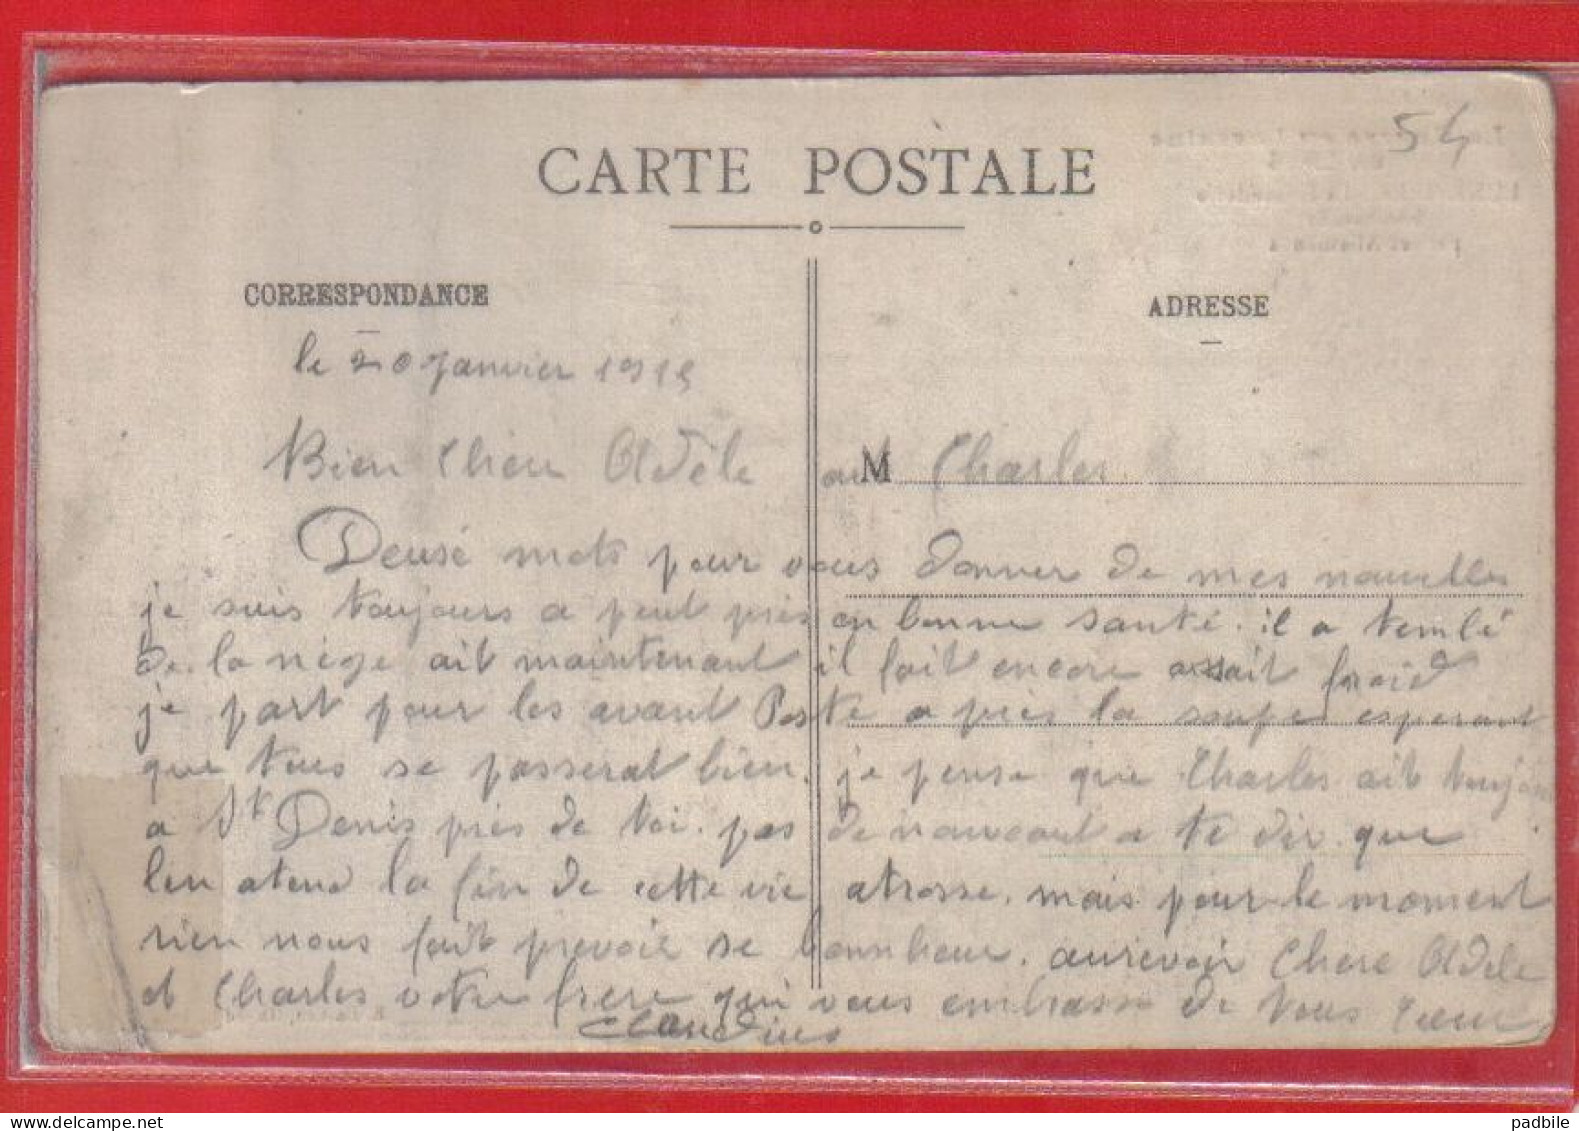 54
CARTE POSTALE
CORRESPONDANCE
ADRESSE
le 20 janvier 1915
Bien Chere Adèle
M
Charles
Deuse mots pour vous donner de mes nouvelles
je suis toujours a peut près en bonne santé. il a tembé
de la nège ait maintenant il fait encore assait froid
je part pour les avant Poste après la soupe esperant
que tous se passerat bien. je pense que Charles ait toujour
a St Denis près de toi. pas de nouveaut a te dir que
l'en atend la fin de cette vie atrosse. mais pour le moment
rien nous fait prevoir se bonnheur. aurevoir Chere Adele
et Charles votre frere qui vous embrasse de tous coeur
Claudius
padbile